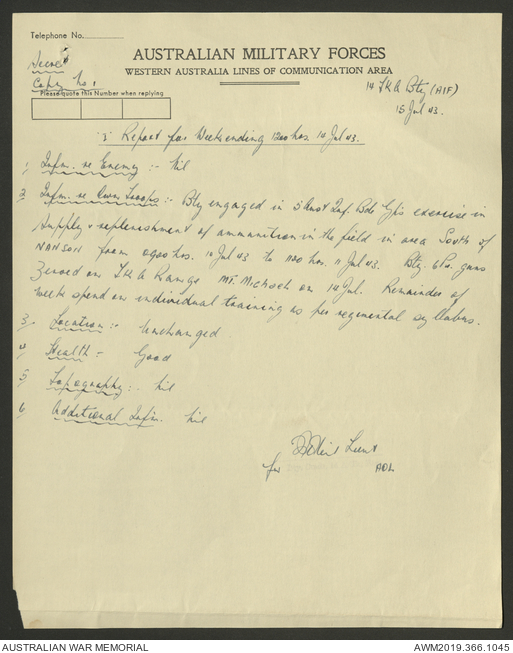 Telephone No.
Secret
Copy No 1
AUSTRALIAN MILITARY FORCES
WESTERN AUSTRALIA LINES OF COMMUNICATION AREA
Please quote this Number when replying
14 Tk A Bty (AIF)
15 Jul 43.
"I" Report for Week ending 1200 hrs 14 Jul 43.
1 Infm. re Enemy :- Nil
2 Infm. re Own Troops :- Bty engaged in 5 Aust Inf. Bde Gp's exercise in
supply & replenishment of ammunition in the field in area South of
NANSON from 0900 hrs. 10 Jul 43 to 1100 hrs. 11 Jul 43. Bty. 6 Pr. guns
zeroed on Tk A Range Mt. Michael on 14 Jul. Remainder of
week spend on individual training as per regimental syllabus.
3 Location :- Unchanged
4 Health = Good
5 Topography :. Nil
6 Additional Infm. Nil
Lieut
for
AUSTRALIAN WAR MEMORIAL
AWM2019.366.1045